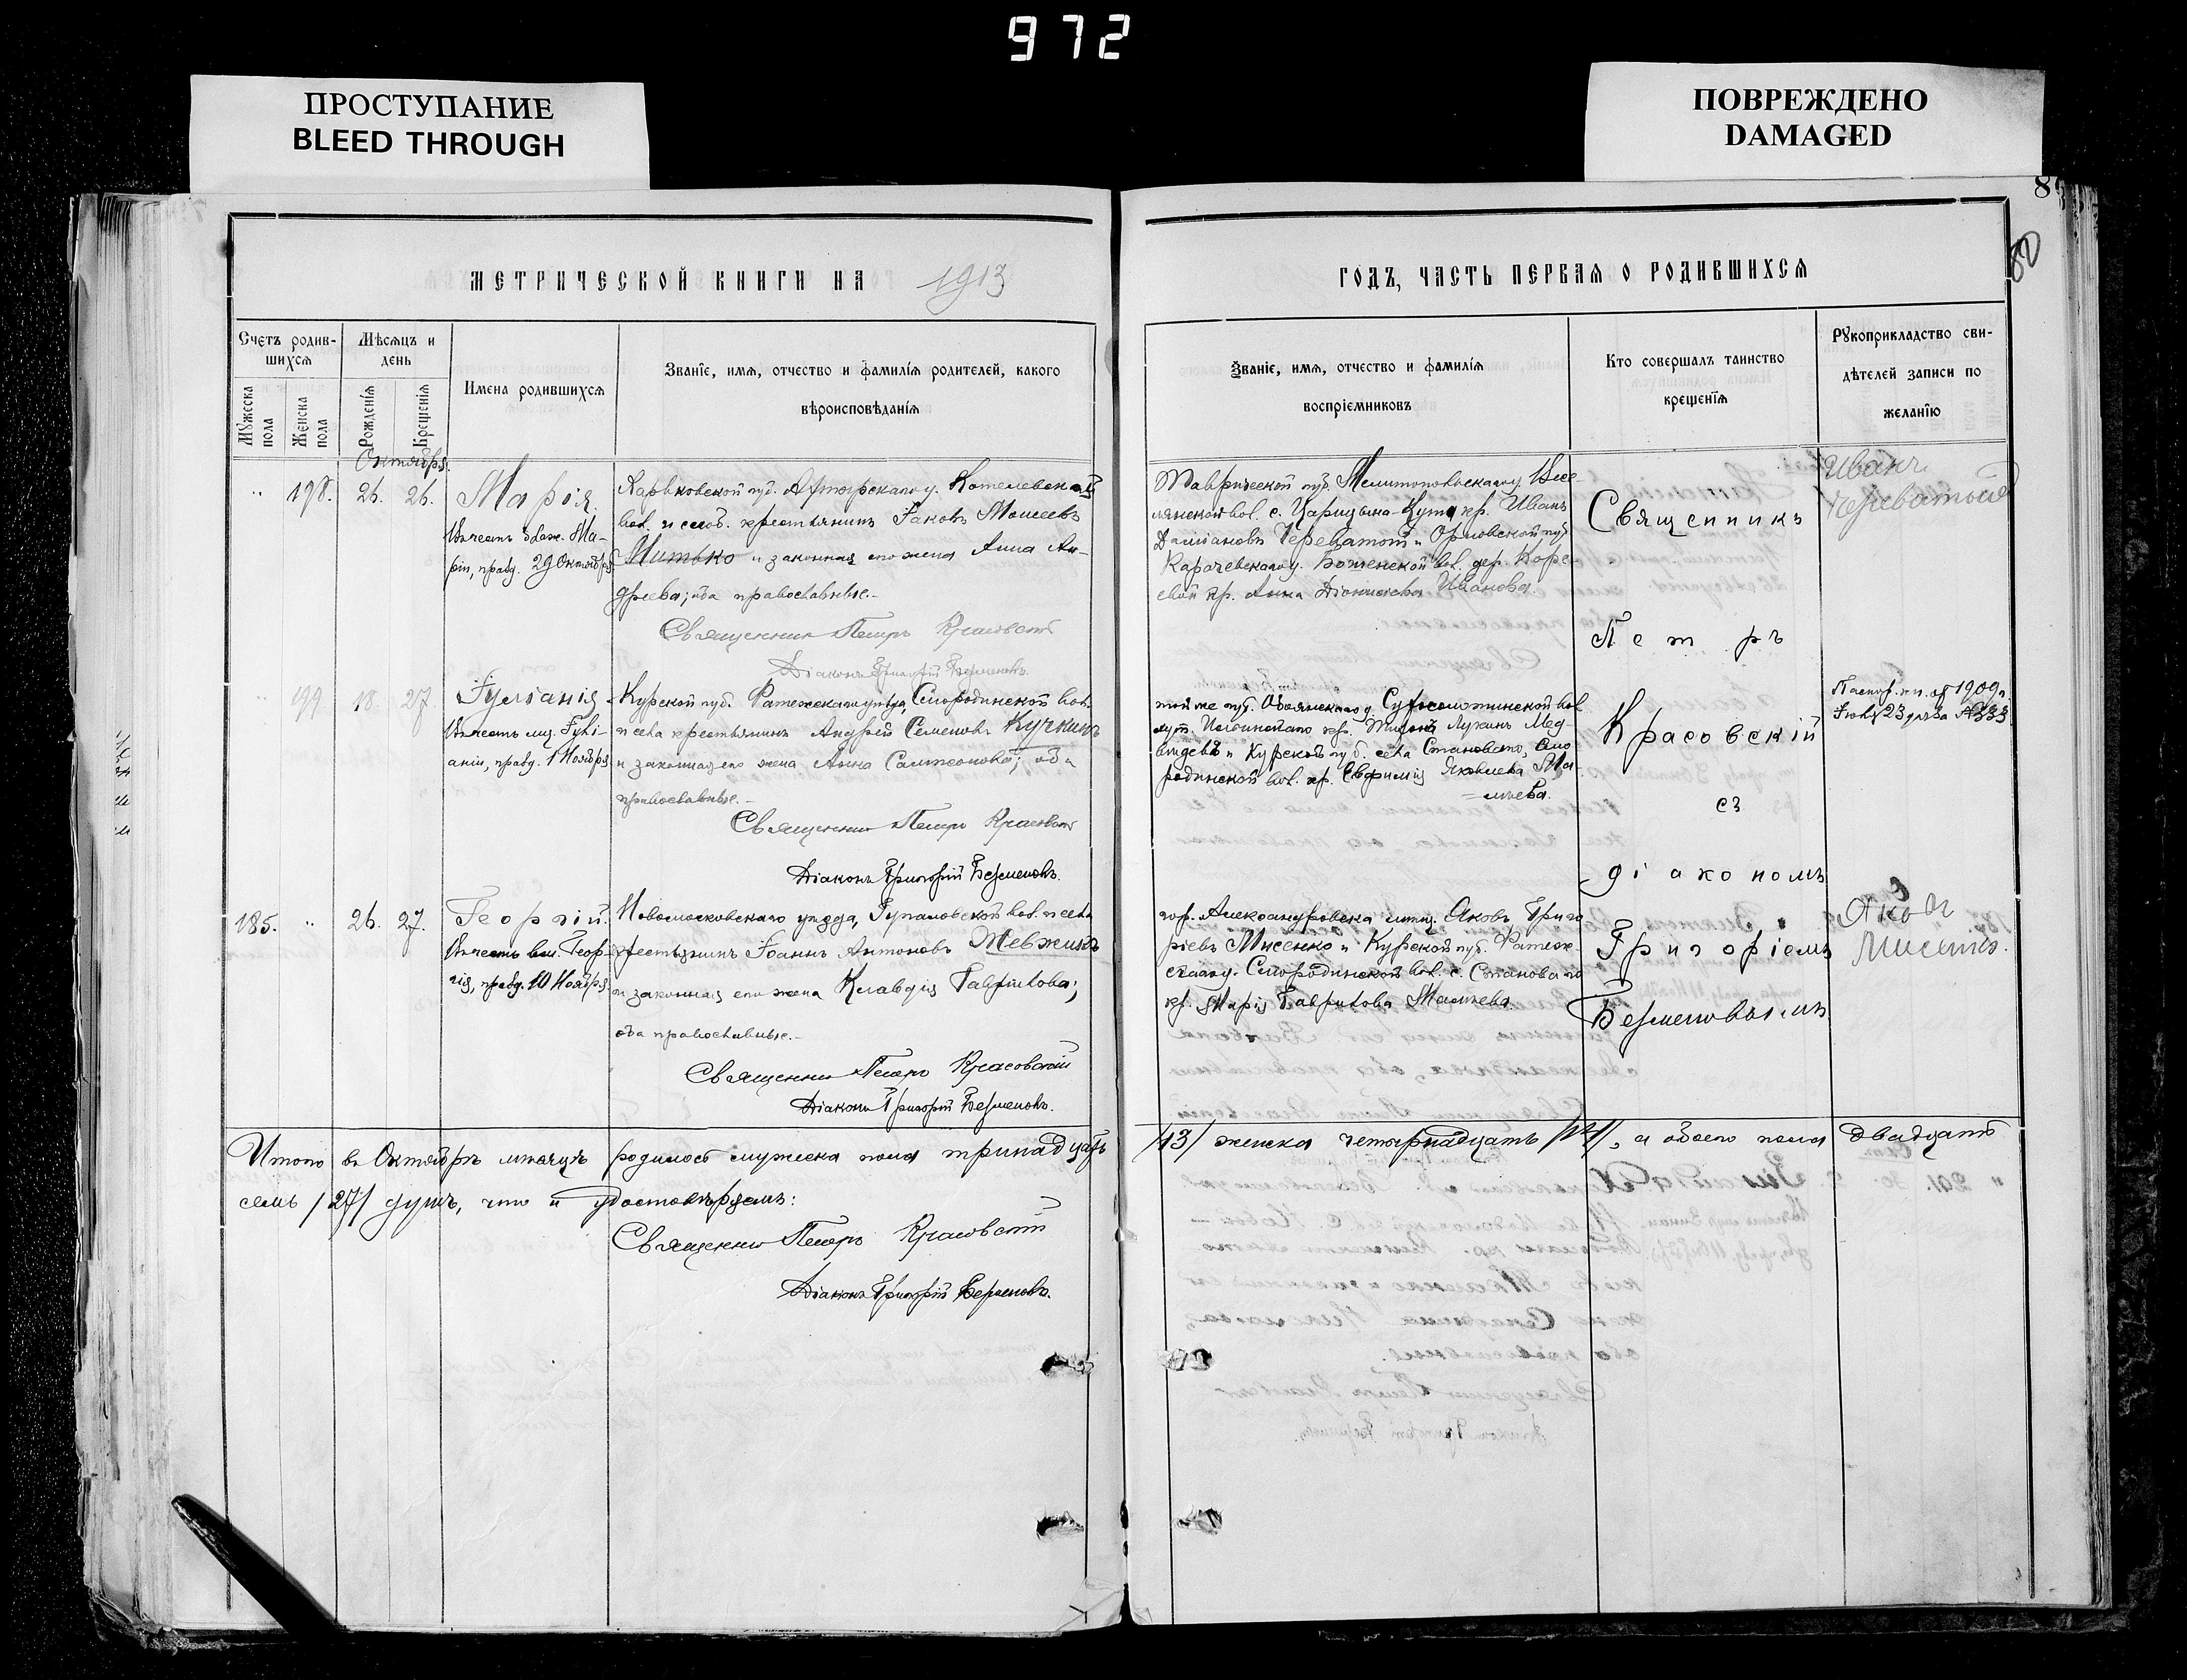 972
ПРОСТУПАНИЕ
BLEED THROUGH
ПОВРЕЖДЕНО
DAMAGED
8
80
МЕТРИЧЕСКОЙ КНИГИ НА 1913
ГОДЪ, ЧАСТЬ ПЕРВАЯ О РОДИВШИХСЯ
Счетъ родив-
шихся
Мужеска пола
Женска пола
Мѣсяцъ и
день
Рожденія
Крещенія
Имена родившихся
Званіе, имя, отчество и фамилія родителей, какого
вѣроисповѣданія
Званіе, имя, отчество и фамилія
воспріемниковъ
Кто совершалъ таинство
крещенія
Рукоприкладство сви-
дѣтелей записи по
желанію
Октября.
" 198. 26. 26.
Марія.
Въ честь блаж. Ма-
ріи, празд. 29 Октября
Харьковской губ. Ахтырскаго у. Котелевской
вол. и слоб. крестьянинъ Іаковъ Моисеевъ
Митько и законная его жена Анна Ан-
дреева; оба православные.-
Священникъ Петръ Красовскій
Діаконъ Григорій Безменовъ.
Таврической губ. Мелитопольскаго у. Весе-
лянской вол. с. Царицына-Кута кр. Иванъ
Череватый и Орловской губ.
Карачевскаго у. вол. дер.
кр. Анна Діонисіева Иванова.
Иванъ
Череватый
" 199 18. 27
Іуліанія
Въ честь муч. Іулі-
аніи, празд. 1 Ноября
Курской губ. Фатежскаго уѣзда, Смородинской вол.
и села крестьянинъ Андрей Семеновъ Кучкинъ
и законная его жена Анна Самсонова; оба
православные.-
Священникъ Петръ Красовскій
Діаконъ Григорій Безменовъ.
той же губ. Обоянскаго у. вол.
Лукинъ Мед-
вѣдевъ и Курской губ. села Становаго, Смо-
родинской вол. кр. Евфимія Яковлева Ма-
льева.
1909 г.
Іюля 23 дня за № 333
185. " 26. 27.
Георгій.
Въ честь вм. Геор-
гія, празд. 10 Ноября.
Новомосковскаго уѣзда, вол. и села
крестьянинъ Іоаннъ Антоновъ Жевжикъ
и законная его жена Клавдія Гавриилова;
оба православные.-
Священникъ Петръ Красовскій
Діаконъ Григорій Безменовъ.
гор. Александровска мѣщ. Яковъ Григо-
рьевъ Мисенко и Курской губ. Фатеж-
скаго у. Смородинской вол. с. Становаго
кр. Марія Гавриилова Малѣева.
Яковъ
Мисенко.
Священникъ
Петръ
Красовскій
съ
діакономъ
Григоріемъ
Безменовымъ
Итого въ Октябрѣ мѣсяцѣ родилось мужеска пола тринадцать /13/ женска четырнадцать /14/, а обоего пола двадцать
семь /27/ душъ, что и удостовѣряемъ:
Священникъ Петръ Красовскій
Діаконъ Григорій Безменовъ.